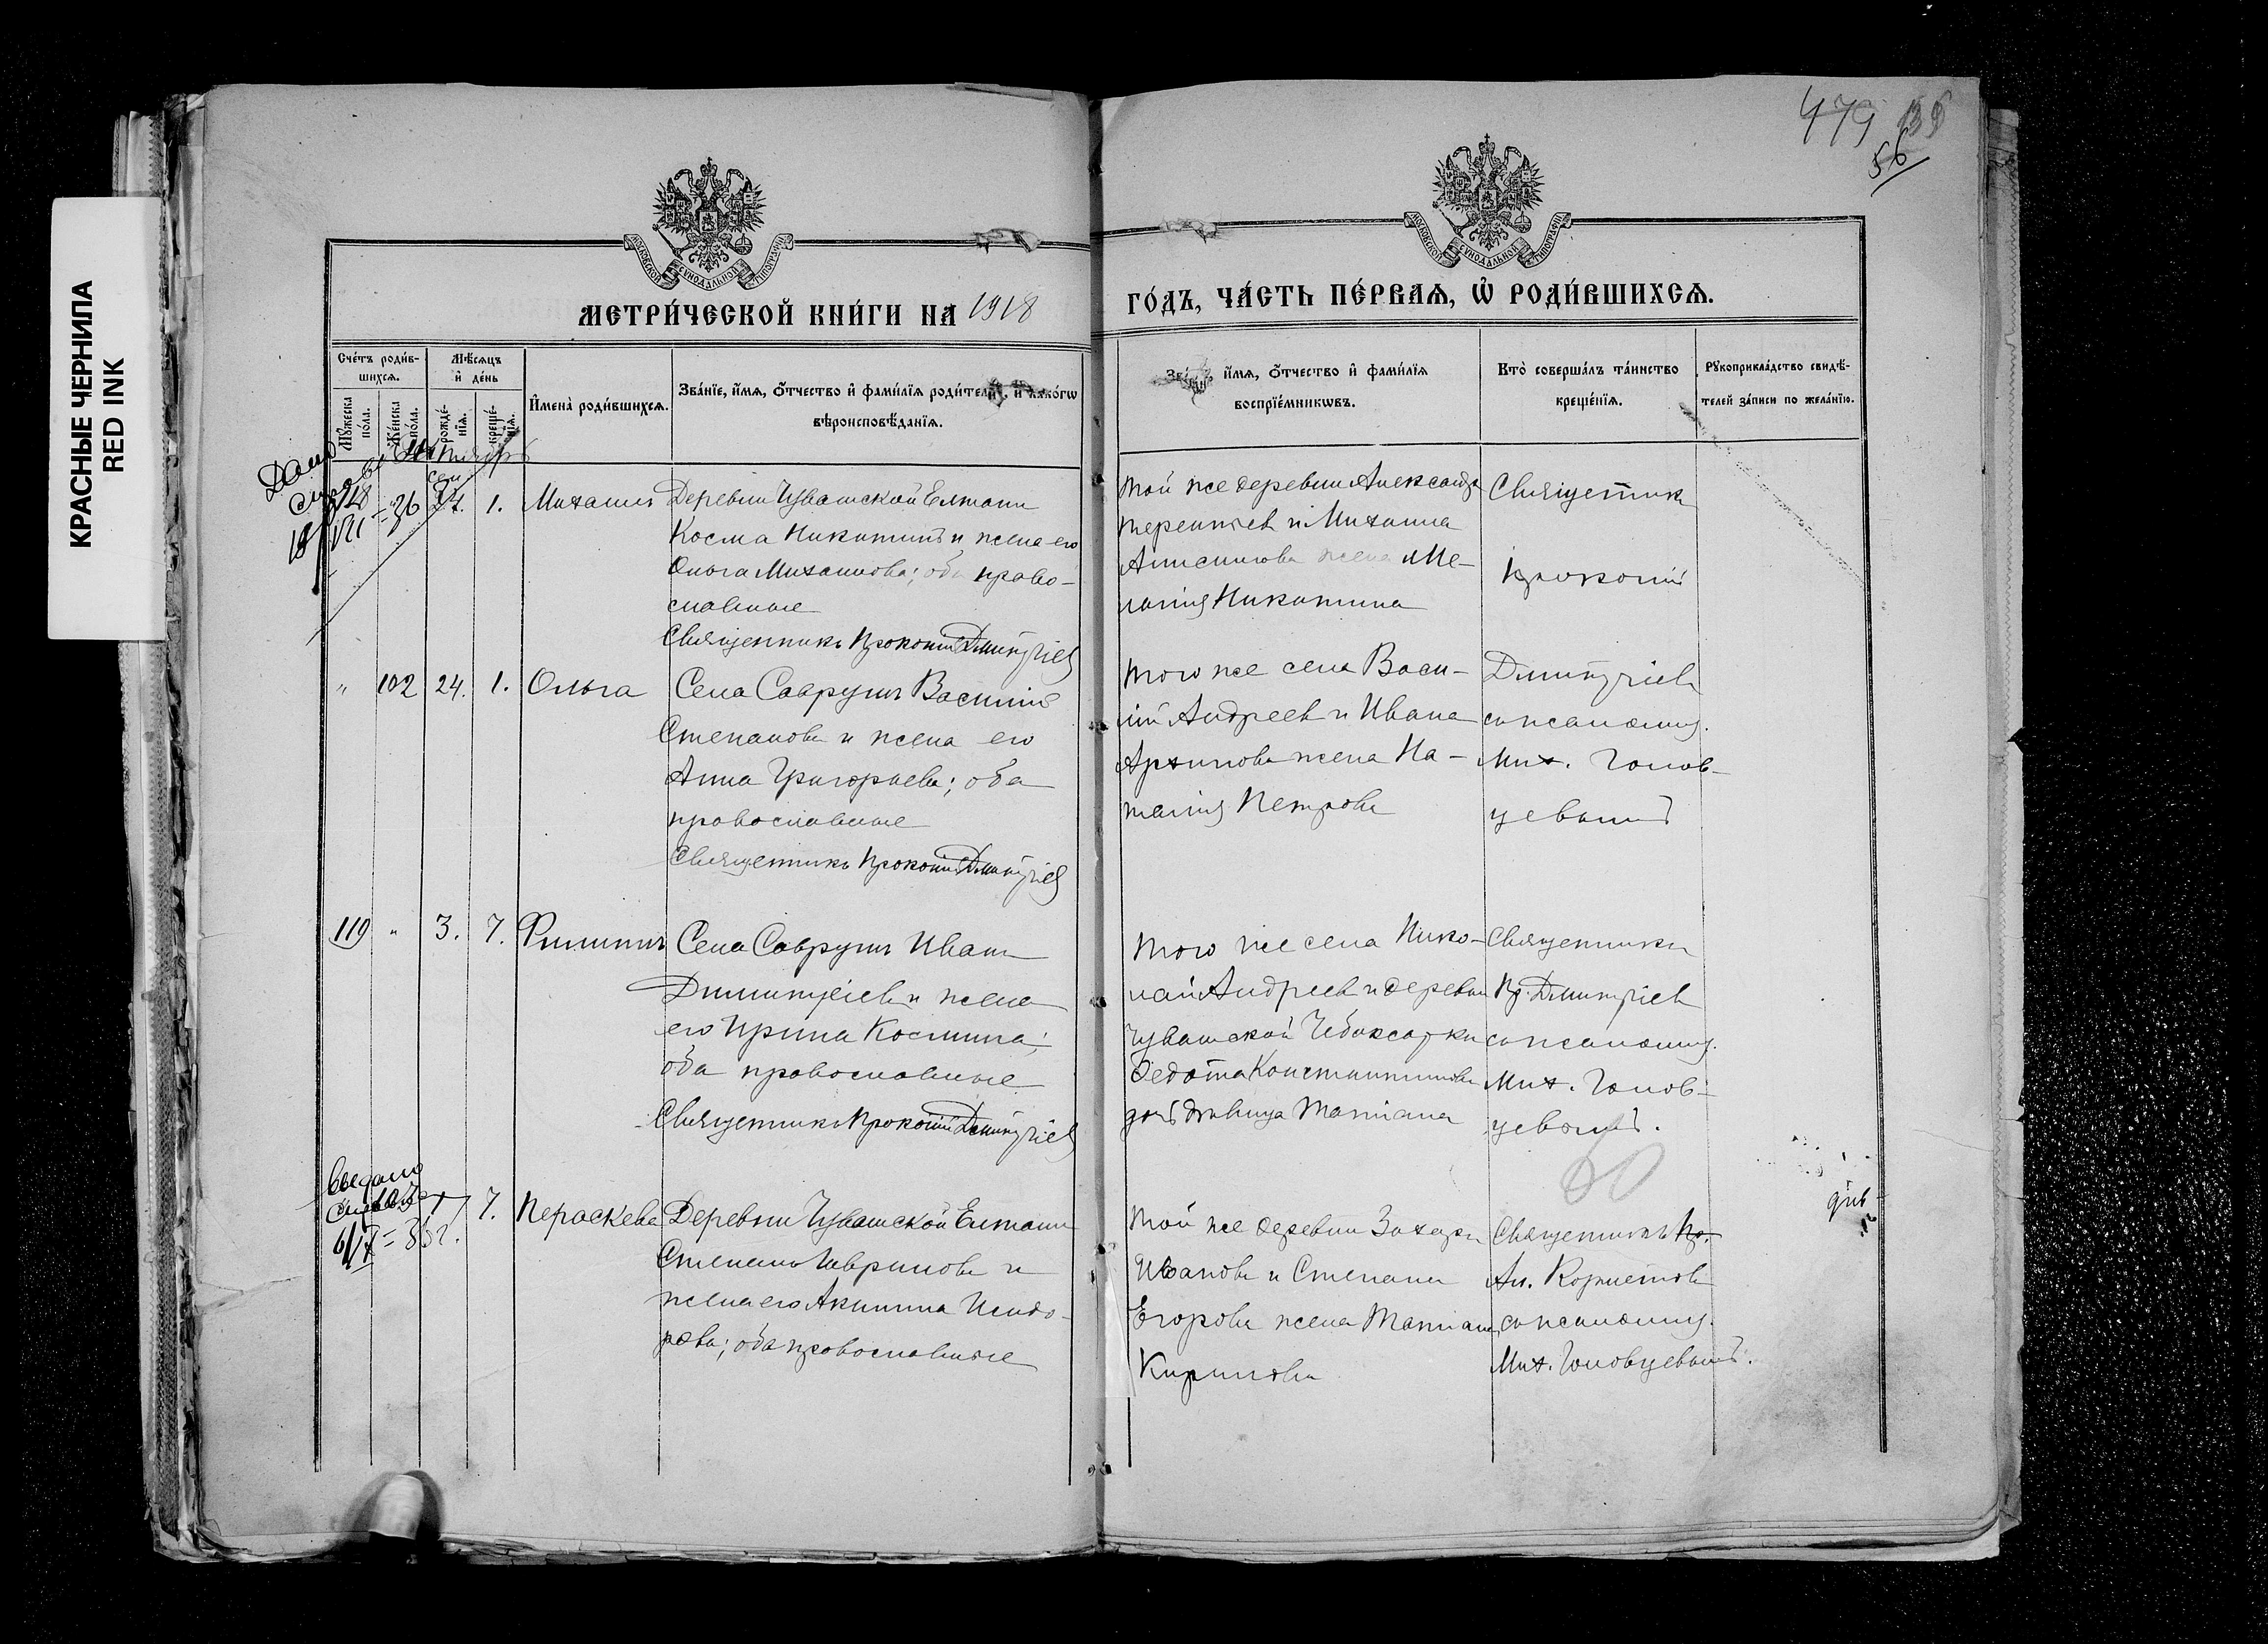 КРАСНЫЕ ЧЕРНИЛА
RED INK
479
56
МОСКОВСКОЙ СѴНОДАЛЬНОЙ ТИПОГРАФІИ
МОСКОВСКОЙ СѴНОДАЛЬНОЙ ТИПОГРАФІИ
МЕТРИ́ЧЕСКОЙ КНИ́ГИ НА 1918
ГО́ДЪ, ЧА́СТЬ ПЕ́РВАѦ, Ѽ РОДИ́ВШИХСѦ.
Сче́тъ роди́в-
шихсѧ.
Мѣ́сѧцъ
и҆ де́нь
Мꙋ́жеска
по́ла.
Же́нска
по́ла.
рожде́-
нїѧ.
креще́-
нїѧ.
И҆мена̀ роди́вшихсѧ.
Зва́нїе, и҆́мѧ, ѻ҆́тчество и҆ фами́лїѧ роди́телей, и҆ како́гѡ
вѣроисповѣ́данїѧ.
и҆́мѧ, ѻ҆́тчество и҆ фами́лїѧ
воспрїе́мникѡвъ.
Кто̀ соверша́лъ та́инство
креще́нїѧ.
Рꙋкоприкла́дство свидѣ́-
телей за́писи по жела́нїю.
Октябрь
Дано
Сен.
24. 1. Михаилъ
Деревни Чувашской Елтани
Косма Никитинъ и жена его
Ольга Михаилова; оба право-
славные
Священникъ Прокопій Дмитріев
той же деревни Александр
Терентьев и Михаила
Анисимова жена Ме-
ланія Никитина
Священник
Прокопій
" 102 24. 1. Ольга
Села Саврушъ Василій
Степанов и жена его
Анна Григорьева; оба
православные
Священникъ Прокопій Дмитріев
того же села Васи-
лій Андреев и Ивана
Архипова жена На-
талія Петрова
Дмитріев
съ псаломщ.
Мих. Голов-
цевымъ
119 " 3. 7. Филиппъ
Села Саврушъ Иван
Димитріев и жена
его Ирина Космина;
оба православные
Священникъ Прокопій Дмитріев
того же села Нико-
лай Андреев и деревни
Чувашской Чебоксарки
Федота Константинова
дочь дѣвица Татіана
Священник
Пр. Дмитріев
съ псаломщ.
Мих. Голов-
цевымъ.
Выдано
7. Пераскева
Деревни Чувашской Елтани
Степанъ Гаврилов и
жена его Акилина Исидо-
рова; оба православные
той же деревни Захаръ
Иванов и Степана
Егорова жена Татіана
Кирилова
Священникъ
Ал. Корнетов
съ псаломщ.
Мих. Головцевымъ.